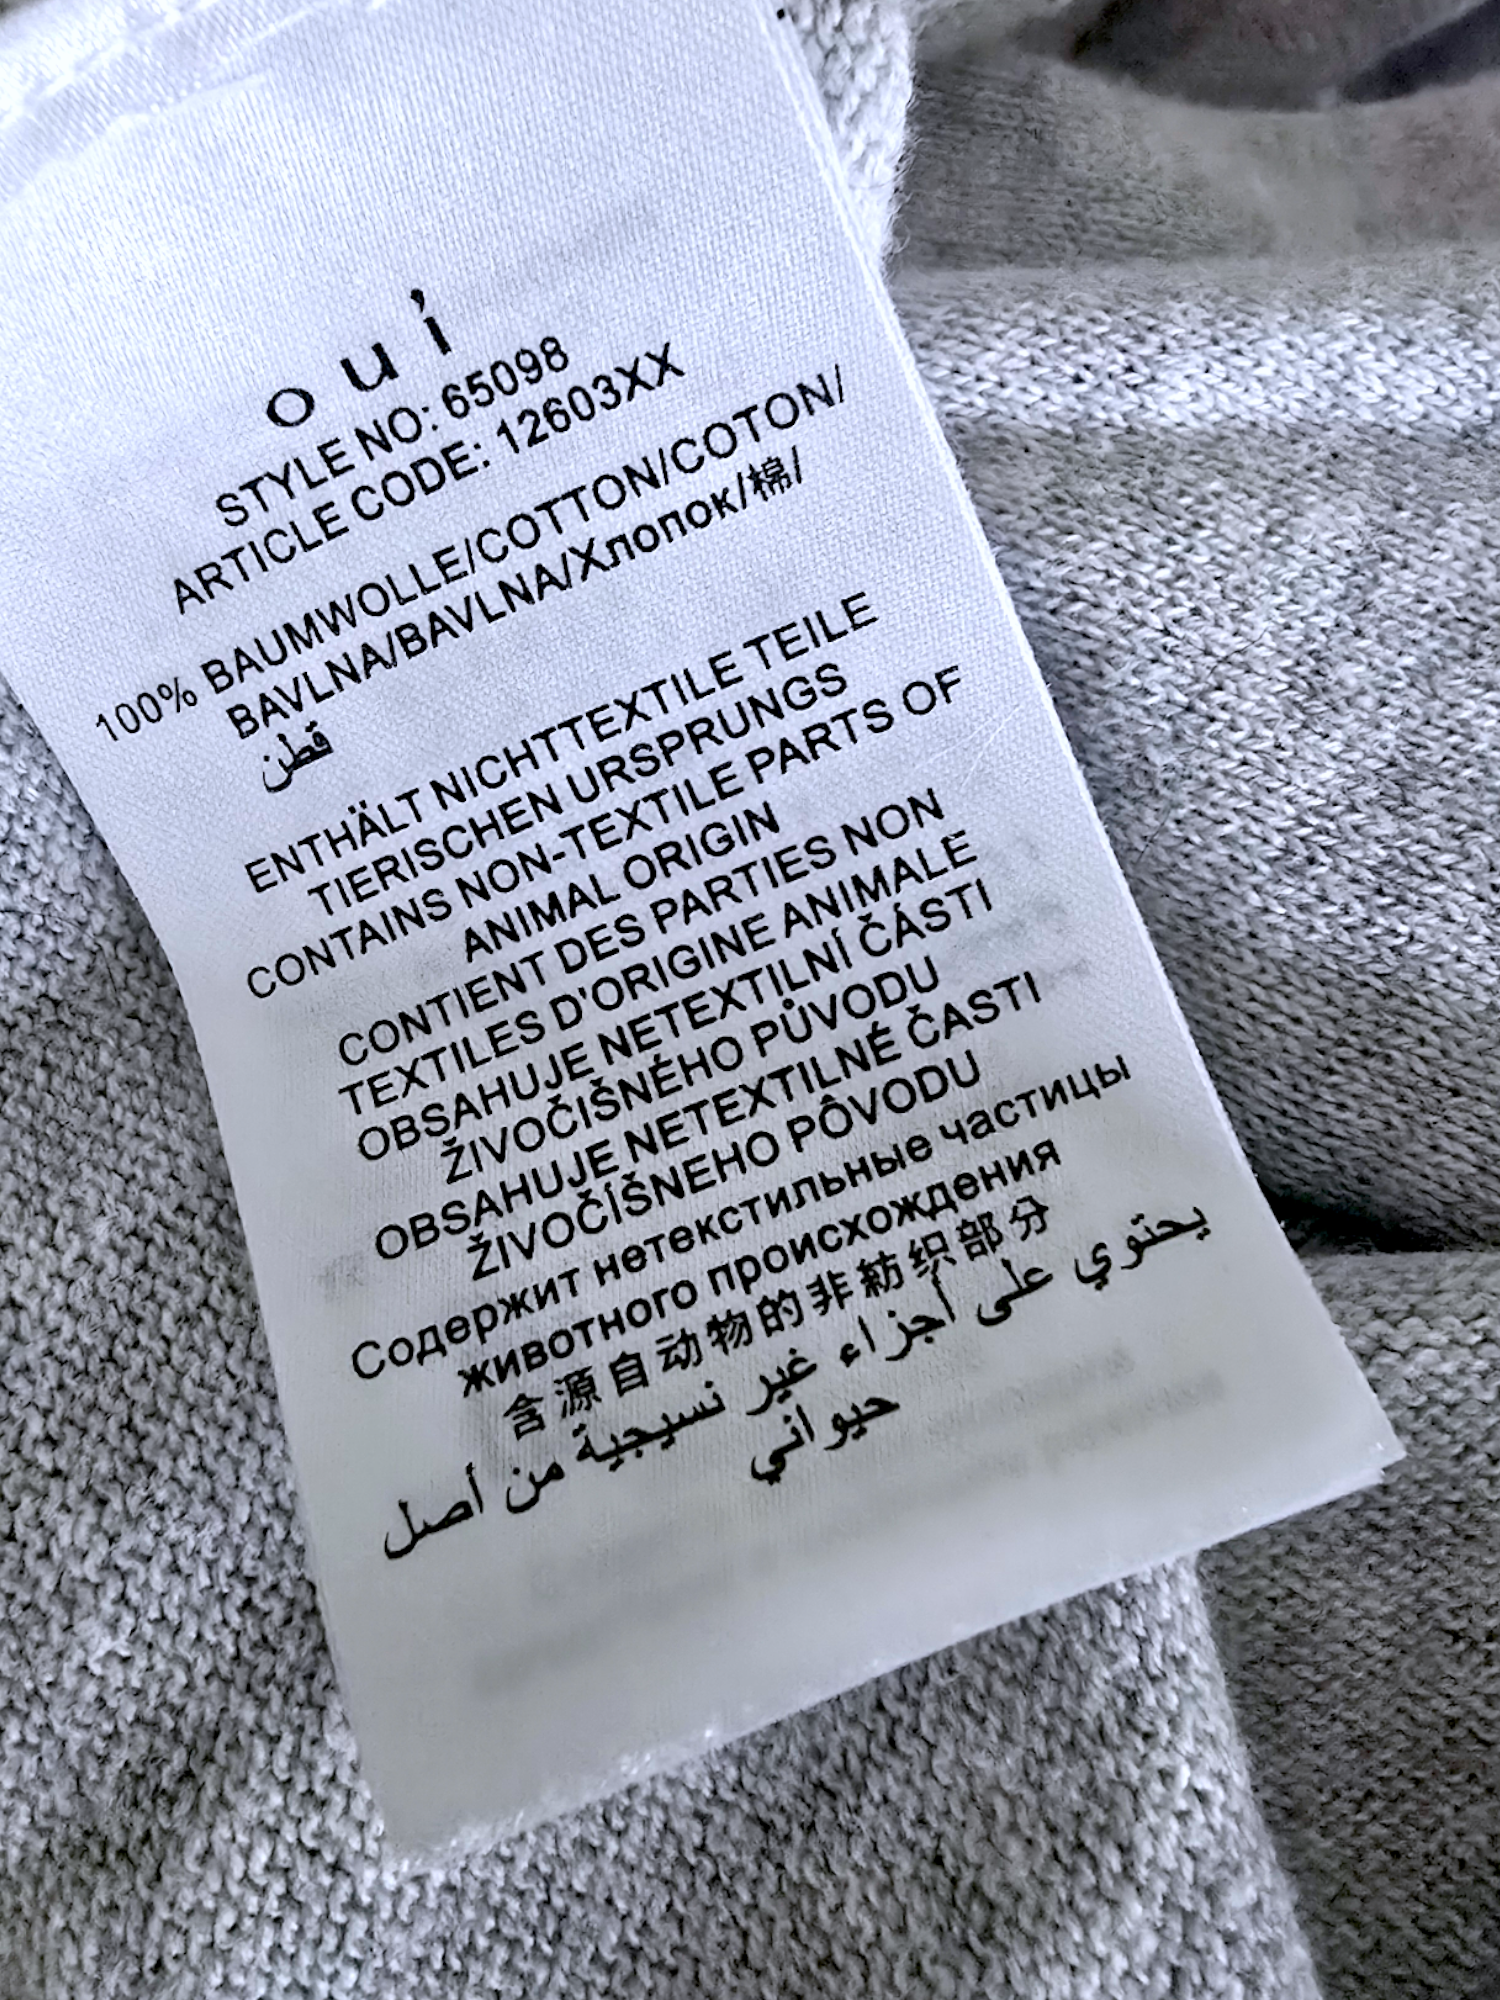 ouí
STYLE NO: 65098
ARTICLE CODE: 12603XX
100% BAUMWOLLE/COTTON/COTON/
BAVLNA/BAVLNA/Хлопок/棉/
قطن
ENTHÄLT NICHTTEXTILE TEILE
TIERISCHEN URSPRUNGS
CONTAINS NON-TEXTILE PARTS OF
ANIMAL ORIGIN
CONTIENT DES PARTIES NON
TEXTILES D'ORIGINE ANIMALE
OBSAHUJE NETEXTILNÍ ČÁSTI
ŽIVOČIŠNÉHO PŮVODU
OBSAHUJE NETEXTILNÉ ČASTI
ŽIVOČÍŠNEHO PÔVODU
Содержит нетекстильные частицы
животного происхождения
含源自动物的非纺织部分
يحتوي على أجزاء غير نسيجية من أصل
حيواني